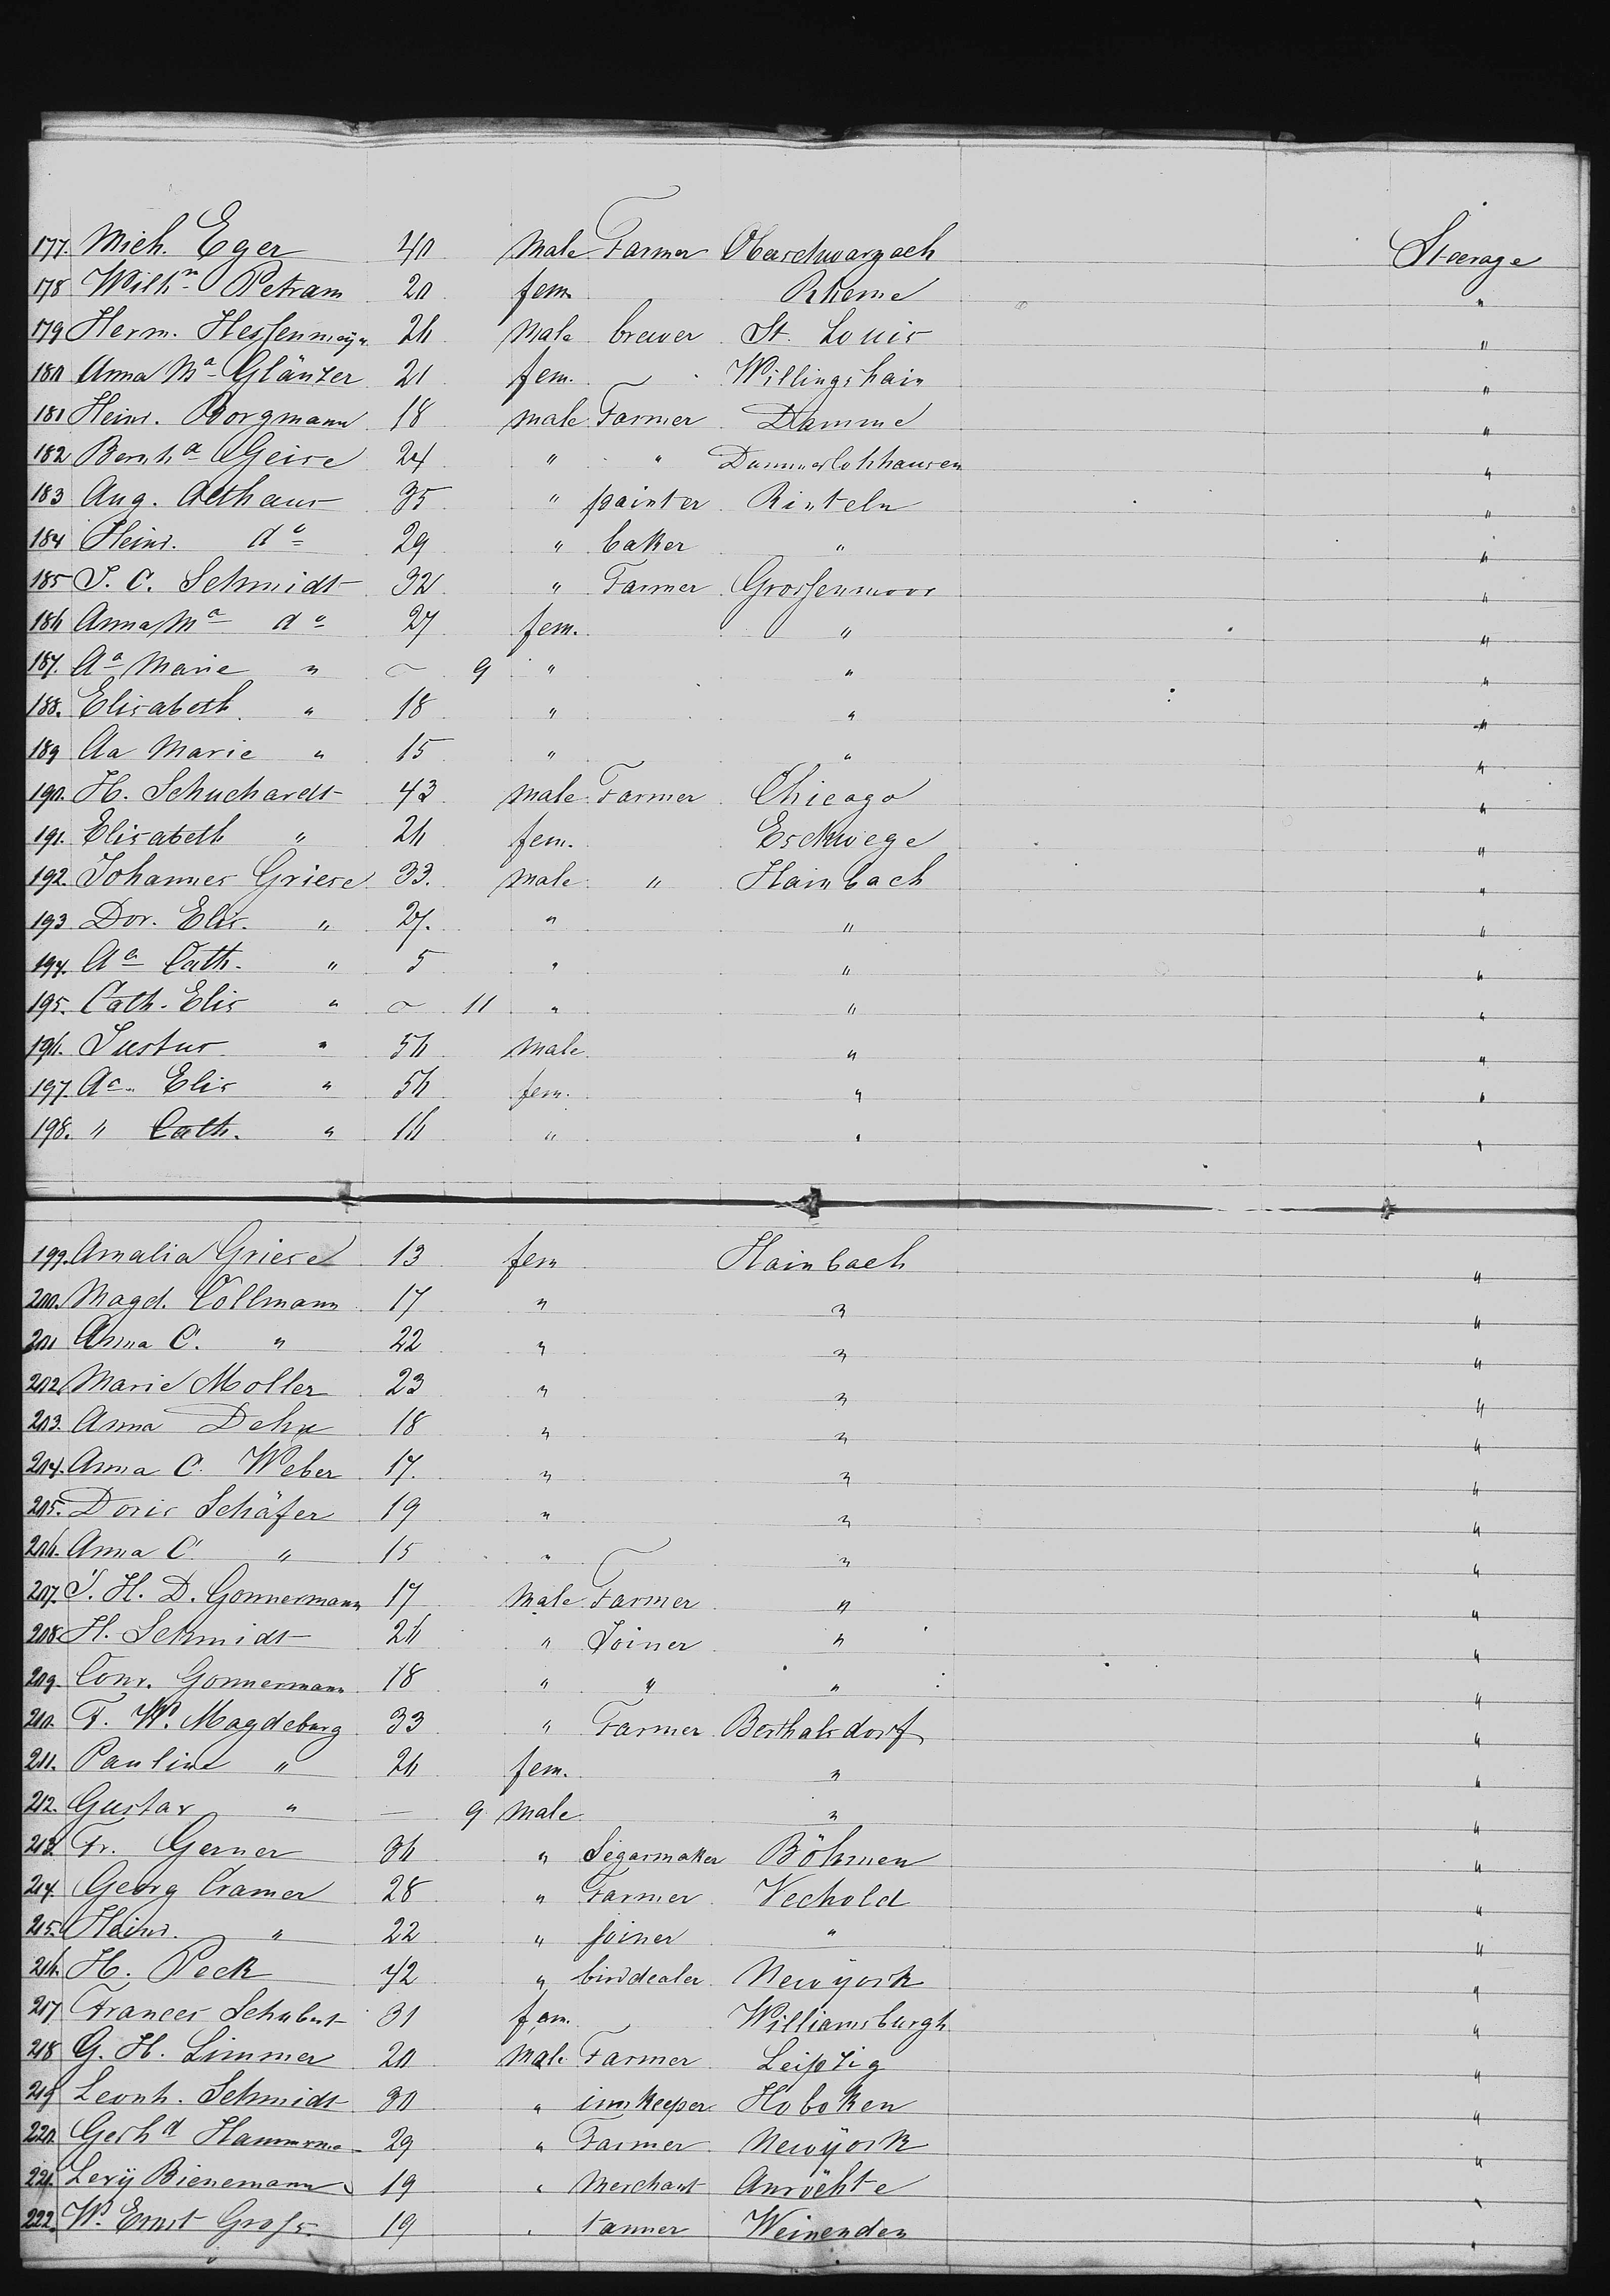 177. Mich. Eger 40 Male Farmer Oberschwarzach Steerage
178 Wilh.m Petram 20 fem. Rheme "
179 Herm. Hessenmeyer 26 Male brewer St. Louis "
180 Anna Ma Glänzer 21 fem. Willingshain "
181 Heinr. Borgmann 18 male Farmer Damme "
182 Bernh.d Geise 24 " " Dammerlohhausen "
183 Aug. Althaus 35 " painter Rinteln "
184 Heinr. do 29 " baker " "
185 J. C. Schmidt 32 " Farmer Grossenmoor "
186 Anna Ma do 27 fem. " "
187. Aa Marie " – 9 " " "
188. Elisabeth " 18 " " "
189 Aa Marie " 15 " " "
190. H. Schuchardt 43 male Farmer Chicago "
191. Elisabeth " 26 fem. Eschwege "
192. Johannes Griese 33. male " Hainbach "
193 Dor. Elis. " 27. " " "
194. Aa Cath. " 5 " " "
195. Cath. Elis " – 11 " " "
196. Justus " 56 Male " "
197. Aa Elis " 56 fem. " "
198. " Cath. " 16 " " "
199. Amalia Griese 13 fem Hainbach "
200. Magd. Collmann 17 " " "
201 Anna C. " 22 " " "
202 Marie Moller 23 " " "
203. Anna Dehn 18 " " "
204. Anna C. Weber 17. " " "
205. Doris Schäfer 19 " " "
206. Anna C. " 15 " " "
207. J. H. D. Gonnermann 17 Male Farmer " "
208. H. Schmidt 26 " Joiner " "
209. Conr. Gonnermann 18 " " " "
210. F. W. Magdeburg 33 " Farmer Berthalsdorf "
211. Pauline " 26 fem. " "
212. Gustav " — 9 Male " "
213. Fr. Gerner 36 " Segarmaker Böhmen "
214. Georg Cramer 28 " Farmer Vechold "
215. Heinr. " 22 " joiner " "
216. H. Peck 42 " birddealer Newyork "
217 Frances Schubert 31 fem. Williamsburgh "
218 G. H. Limmer 20 Male Farmer Leipzig "
219 Leonh. Schmidt 30 " innkeeper Hoboken "
220. Gerh.d 29 " Farmer Newyork "
221. Levy Bienemann 19 " Merchant Anröchte "
222. W. Ernst Gross 19 " tanner Weinenden "